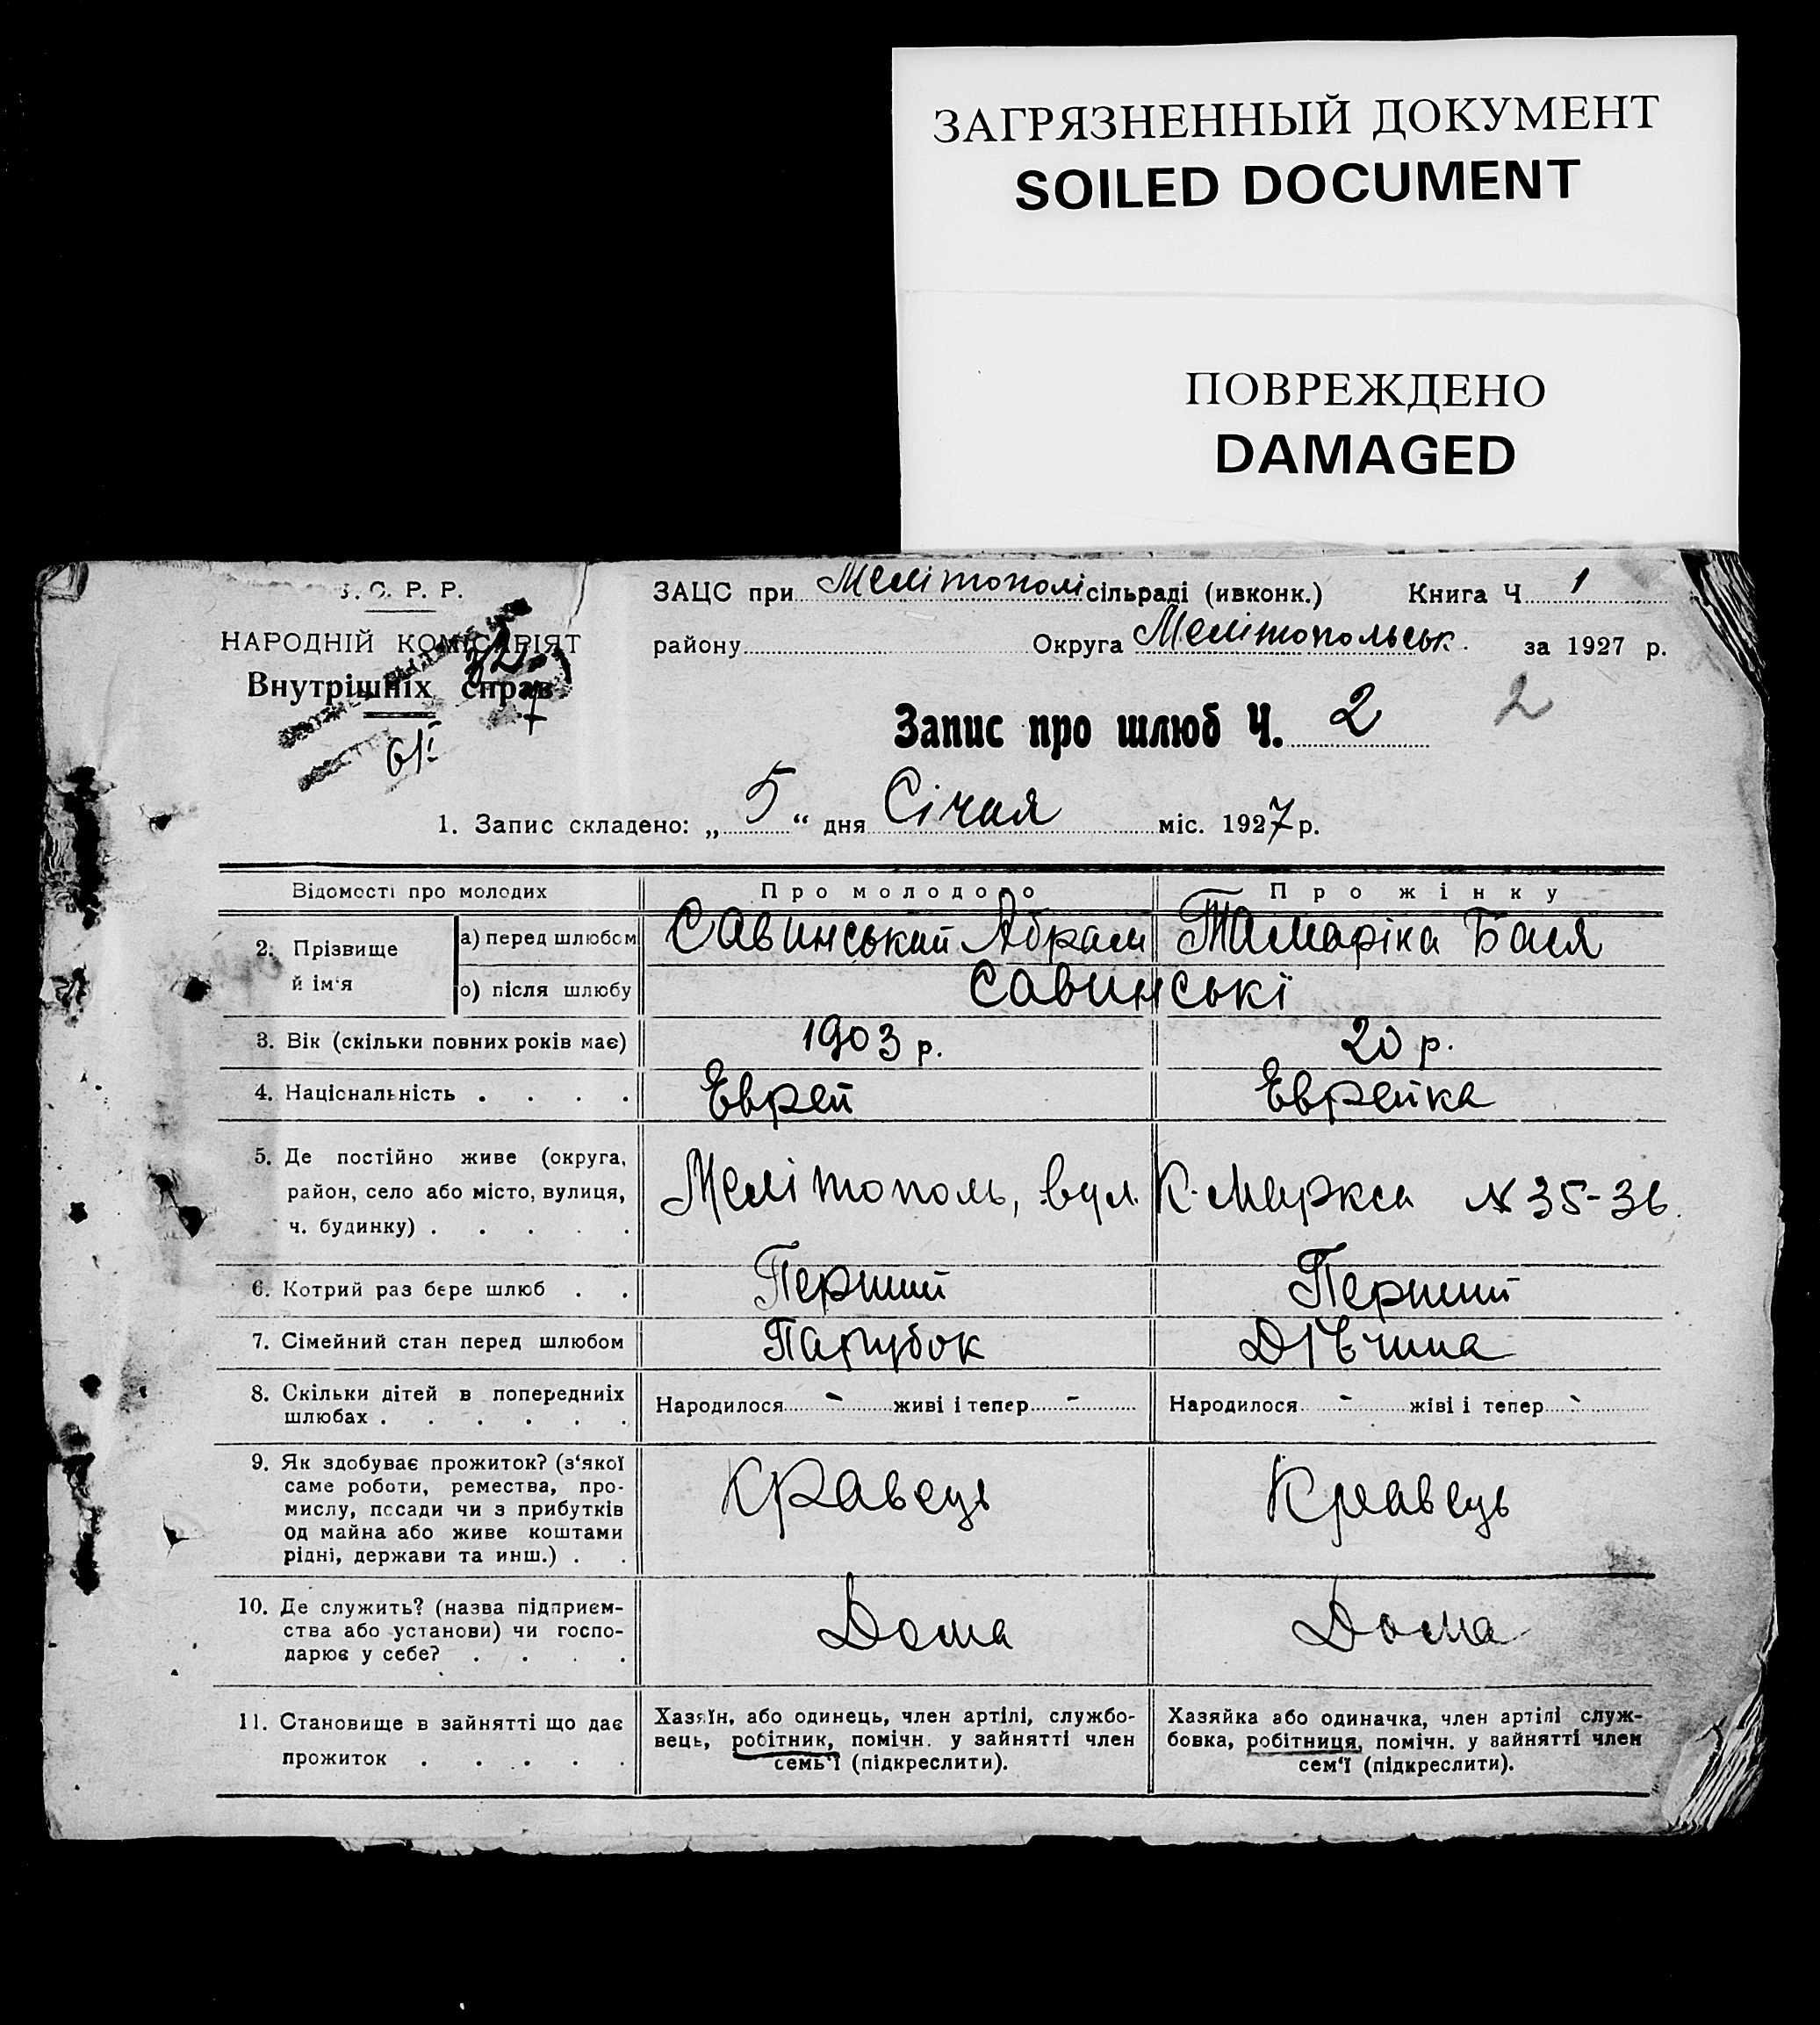 ЗАГРЯЗНЕННЫЙ ДОКУМЕНТ
SOILED DOCUMENT
ПОВРЕЖДЕНО
DAMAGED
С. Р. Р.
ЗАЦС при Мелітополі сільраді (ивконк.) Книга Ч 1
НАРОДНІЙ КОМІСАРІЯТ
району Округа Мелітопольськ. за 1927 р.
Внутрішніх справ
Запис про шлюб Ч. 2 2
1. Запис складено: „5“ дня Січня міс. 1927 р.
Відомості про молодих Про молодого Про жінку
2. Прізвище й ім'я а) перед шлюбом Савинський Абрам Тамаріна Бася
о) після шлюбу Савинські
3. Вік (скільки повних років має) 1903 р. 20 р.
4. Національність . . . . Еврей Еврейка
5. Де постійно живе (округа,
район, село або місто, вулиця, Мелітополь, вул. К. Маркса № 35-36
ч. будинку) . . . . .
6. Котрий раз бере шлюб . . Перший Перший
7. Сімейний стан перед шлюбом Парубок Дівчина
8. Скільки дітей в попередниіх Народилося - живі і тепер - Народилося - жіві і тепер -
шлюбах . . . . . .
9. Як здобуває прожиток? (з'якої
саме роботи, ремества, про-
мислу, посади чи з прибутків Кравець Кравець
од майна або живе коштами
рідні, держави та инш.) . .
10. Де служить? (назва підприєм-
ства або установи) чи госпо- Дома Дома
дарює у себе? . . . .
11. Становище в зайнятті що дає Хазяїн, або одинець, член артілі, службо- Хазяйка або одиначка, член артілі служ-
вець, робітник, помічн. у зайнятті член бовка, робітниця, помічн. у зайнятті член
прожиток . . . . . семь'ї (підкреслити). сем'ї (підкреслити).